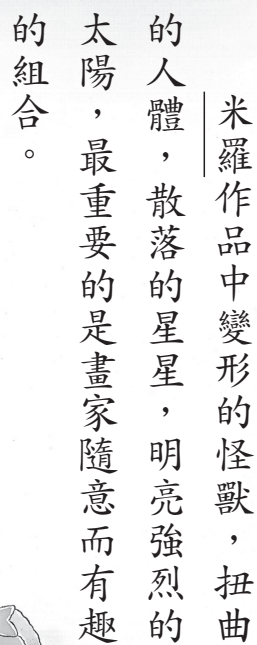 米羅作品中變形的怪獸，扭曲
的人體，散落的星星，明亮強烈的
太陽，最重要的是畫家隨意而有趣
的組合。